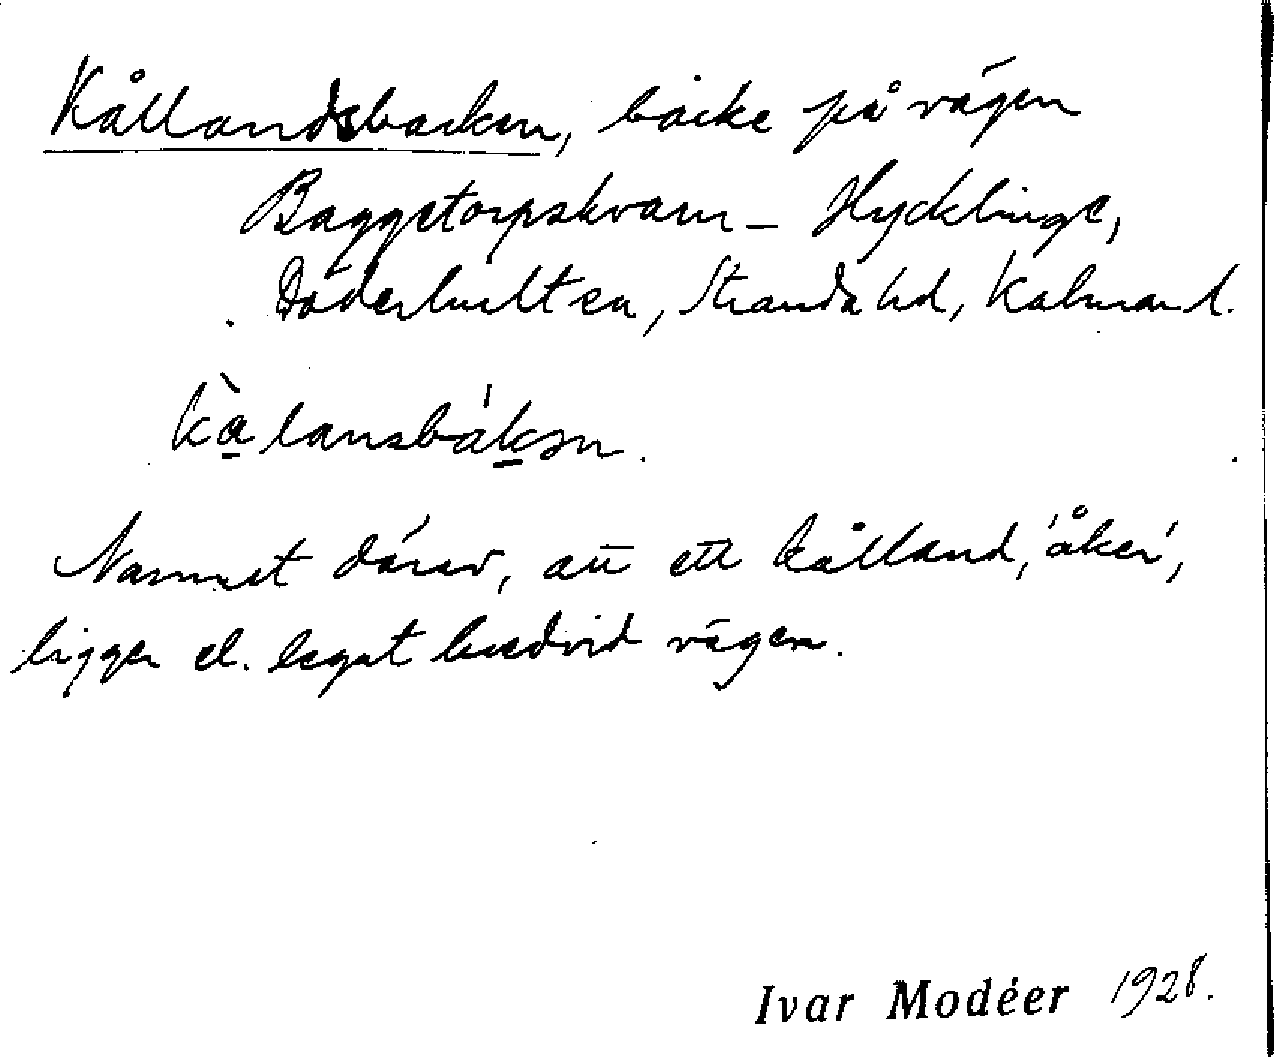 Kållandsbacken, backe på vägen
Baggetorpskvarn - Hycklinge,
Döderhults sn, Stranda hd, Kalmar l.
kà̱lansbáḵən.
Namnet därav, att ett kålland, 'åker',
ligger el. legat bredvid vägen.
Ivar Modéer 1928.